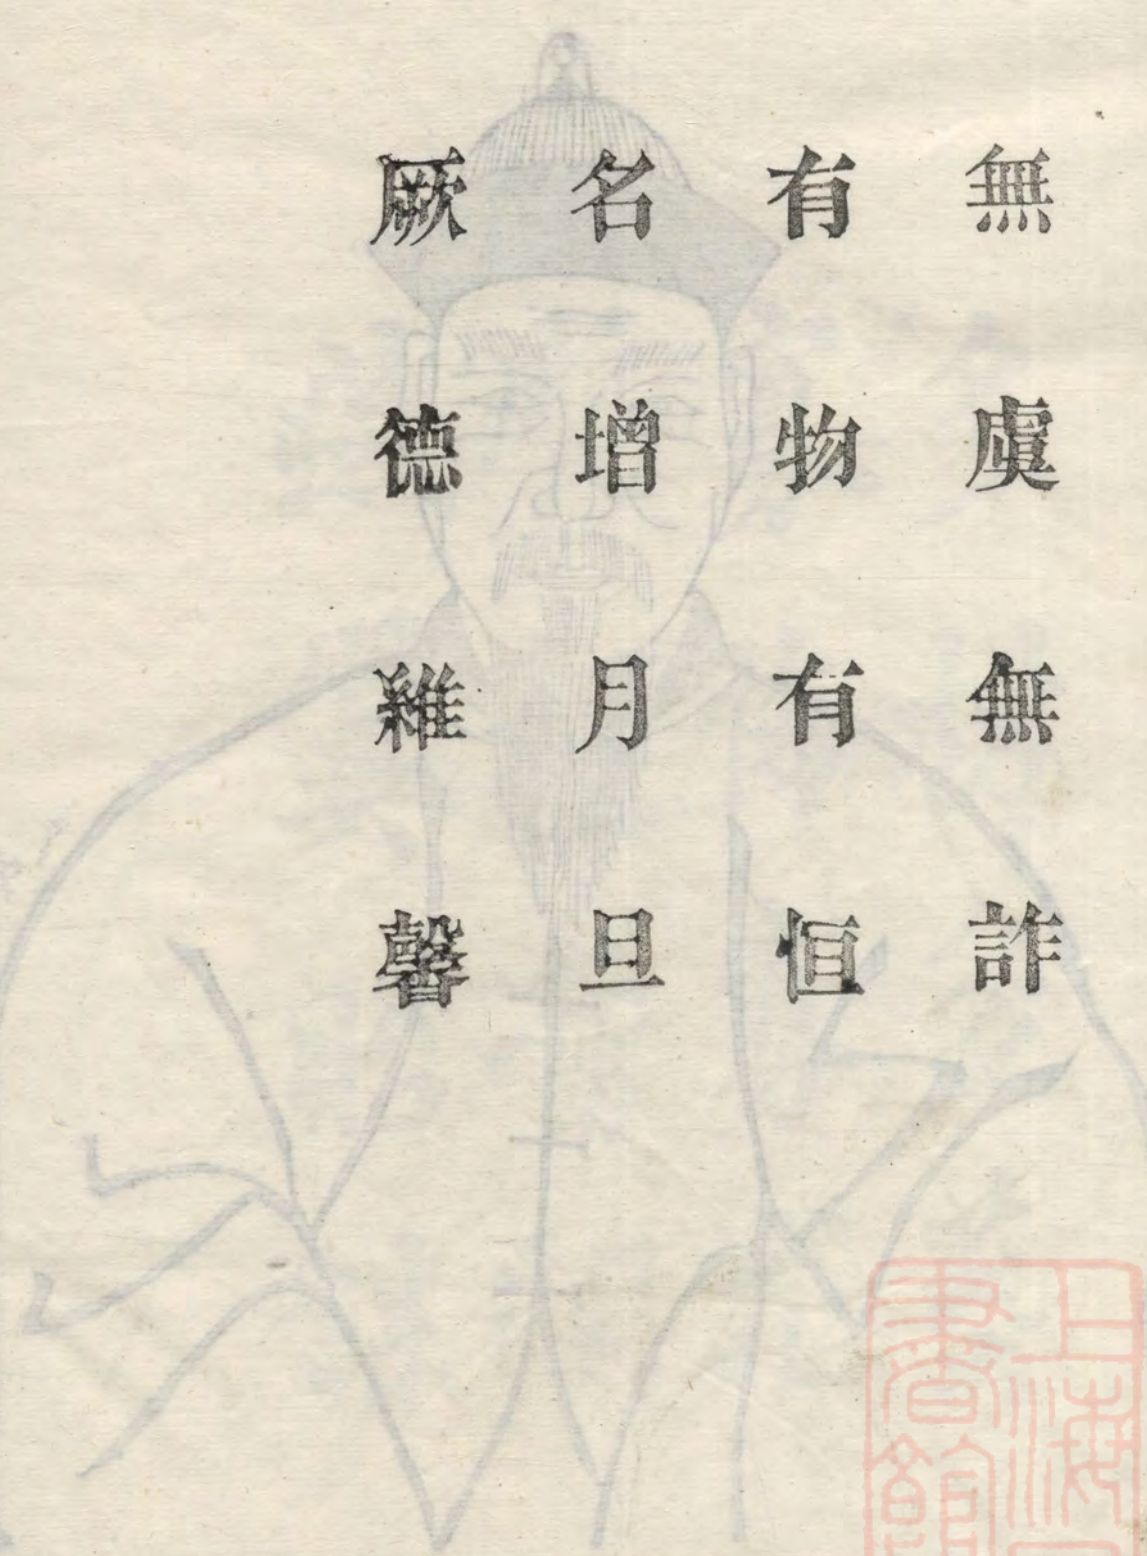 無虞無詐
有物有恒
名增月旦
厥德維馨
上海
書館